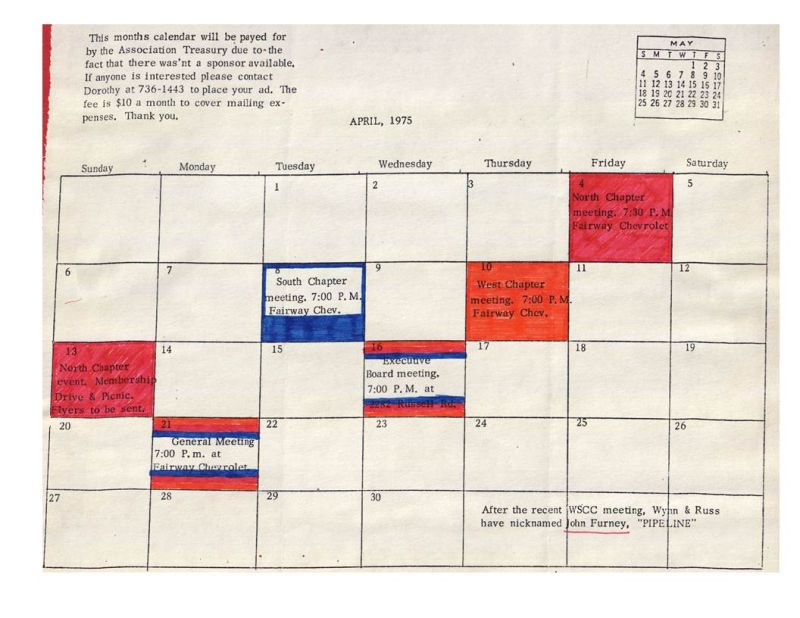 This months calendar will be payed for
by the Association Treasury due to the
fact that there was'nt a sponsor available.
If anyone is interested please contact
Dorothy at 736-1443 to place your ad. The
fee is $10 a month to cover mailing ex-
penses. Thank you.
MAY
S M T W T F S
1 2 3
4 5 6 7 8 9 10
11 12 13 14 15 16 17
18 19 20 21 22 23 24
25 26 27 28 29 30 31
APRIL, 1975
Sunday Monday Tuesday Wednesday Thursday Friday Saturday
1 2 3 4 5
North Chapter
meeting. 7:30 P.M.
Fairway Chevrolet
6 7 8 9 10 11 12
South Chapter
meeting. 7:00 P.M.
Fairway Chev.
West Chapter
meeting. 7:00 P.M.
Fairway Chev.
13 14 15 16 17 18 19
North Chapter
event. Membership
Drive & Picnic.
Flyers to be sent.
Executive
Board meeting.
7:00 P.M. at
2282 Russell Rd.
20 21 22 23 24 25 26
General Meeting
7:00 P.m. at
Fairway Chevrolet.
27 28 29 30
After the recent WSCC meeting, Wynn & Russ
have nicknamed John Furney, "PIPELINE"